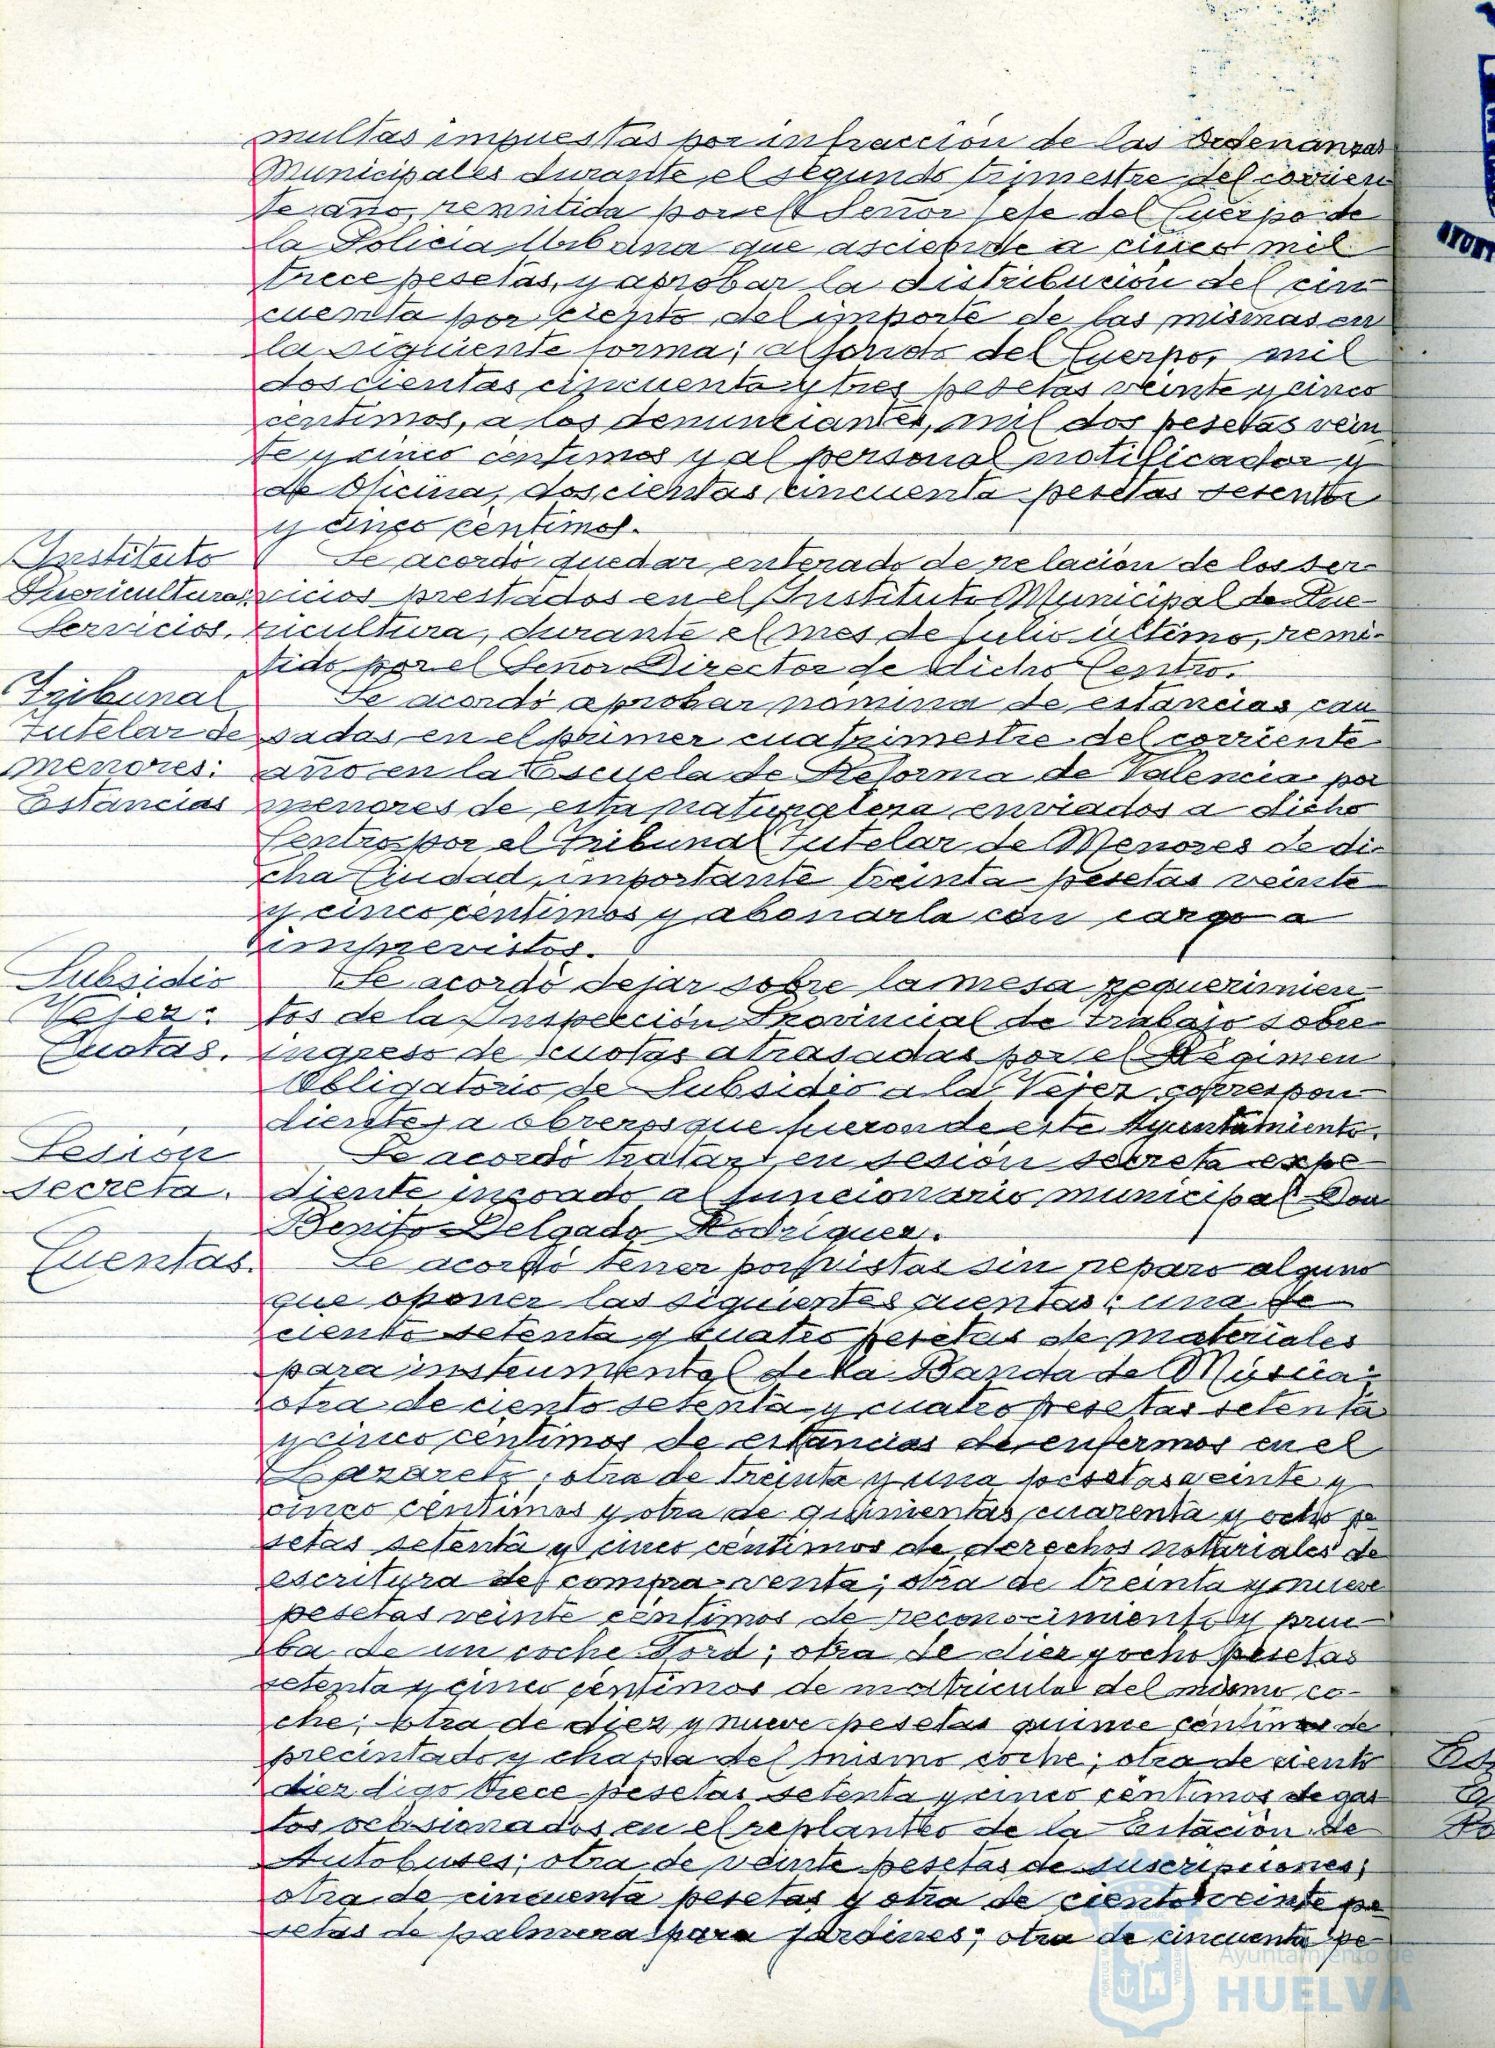 multas impuestas por infracción de las Ordenanzas
Municipales durante el segundo trimestre del corrien
te año, remitida por el Señor Jefe del Cuerpo de
la Policia Urbana que asciende a cinco mil
trece pesetas, y aprobar la distribución del cin
cuenta por ciento del importe de las mismas en
la siguiente forma; al fondo del Cuerpo, mil
doscientas cincuenta y tres pesetas veinte y cinco
centimos, a los denunciantes, mil dos pesetas vein
te y cinco centimos y al personal notificador y
de Oficina, doscientas cincuenta pesetas sesenta
y cinco centimos.
Instituto
Puericultura:
Servicios.
Se acordó quedar enterado de relación de los ser
vicios prestados en el Instituto Municipal de Pue
ricultura, durante el mes de Julio ultimo, remi-
tido por el Señor Director de dicho Centro.
Tribunal
Tutelar de
menores:
Estancias
Se acordó aprobar nómina de estancias cau
sadas en el primer cuatrimestre del corriente
año en la Escuela de Reforma de Valencia por
menores de esta naturaleza enviados a dicho
Centro por el Tribunal Tutelar de Menores de di-
cha Ciudad, importante treinta pesetas veinte
y cinco centimos y abonarla con cargo a
imprevistos.
Subsidio
Vejez:
Cuotas.
Se acordó dejar sobre la mesa requerimien
tos de la Inspección Provincial de Trabajo sobre
ingreso de cuotas atrasadas por el Régimen
Obligatorio de Subsidio a la Vejez correspon
dientes a obreros que fueron de este Ayuntamiento.
Sesión
secreta.
Se acordó tratar en sesión secreta expe
diente incoado al funcionario municipal Don
Benito Delgado Rodríguez.
Cuentas.
Se acordó tener por vistas sin reparo alguno
que oponer las siguientes cuentas: una de
ciento setenta y cuatro pesetas de materiales
para instrumental de la Banda de Música;
otra de ciento setenta y cuatro pesetas setenta
y cinco centimos de estancias de enfermos en el
Lazareto; otra de treinta y una pesetas veinte y
cinco centimos y otra de quinientas cuarenta y ocho pe
setas setenta y cinco centimos de derechos notariales de
escritura de compra-venta; otra de treinta y nueve
pesetas veinte centimos de reconocimiento y prue
ba de un coche Ford; otra de diez y ocho pesetas
setenta y cinco centimos de matricula del mismo co-
che; otra de diez y nueve pesetas quince centimos de
precintado y chapa del mismo coche; otra de ciento
diez digo trece pesetas setenta y cinco centimos de gas
tos ocasionados en el replanteo de la Estación de
Autobuses; otra de veinte pesetas de suscripciones;
otra de cincuenta pesetas y otra de ciento veinte pe
setas de palmeras para jardines; otra de cincuenta pe
Ayuntamiento de
HUELVA